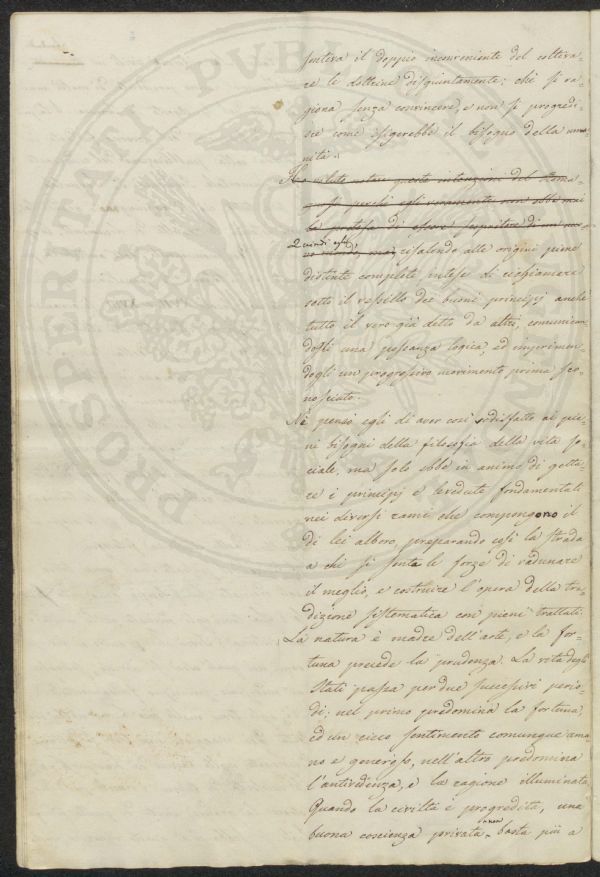 sentiva il doppio inconveniente del coltiva-
re le dottrine disgiuntamente; chè si ra-
giona senza convincere, e non si progredi-
sce come esigerebbe il bisogno della uma-
nità.
Ho voluto notare questa intenzione del Roma-
gnosi perchè egli veramente non ebbe mai
la pretesa di essere scopritore di un nuo-
Quindi egli
vo mondo, ma, risalendo alle origini piene
distinte complete intese di richiamare
sotto il vessillo dei buoni principj anche
tutto il vero già detto da altri, comunican-
dogli una possanza logica, ed imprimen-
dogli un progressivo movimento prima sco-
nosciuto.
Nè pensò egli di aver così soddisfatto ai pie-
ni bisogni della filosofia della vita so-
ciale, ma solo ebbe in animo di getta-
re i principj e le vedute fondamentali
nei diversi rami che compongono il
di lei albero, preparando così la strada
a chi si senta le forze di radunare
il meglio, e costruire l'opera della tra-
dizione sistematica con pieni trattati.
La natura è madre dell'arte, e la for-
tuna precede la prudenza. La vita degli
Stati passa per due successivi perio-
di; nel primo predomina la fortuna,
ed un cieco sentimento comunque uma
no e generoso, nell'altro predomina
l'antivedenza, e la ragione illuminata
Quando la civiltà è progredita, una
buona coscienza privata non basta più a
PROSPERITATI PVBLICAE